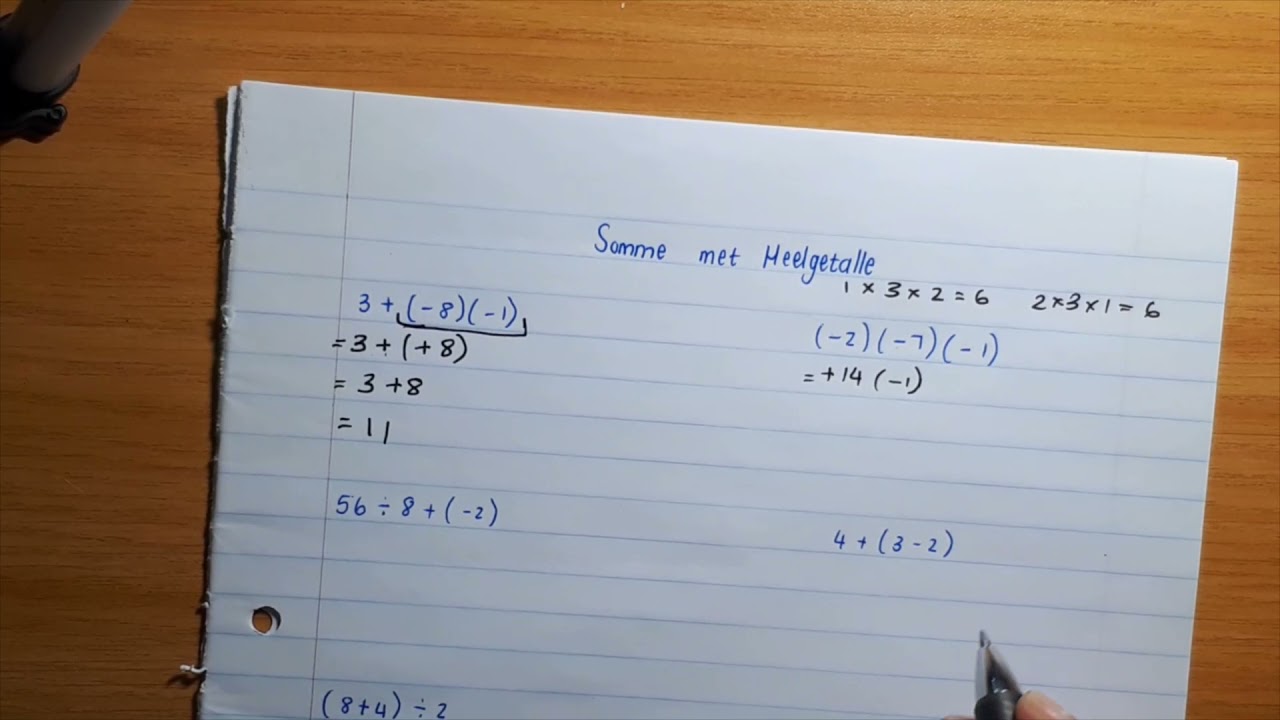 Somme met Heelgetalle
1 × 3 × 2 = 6 2×3×1 = 6
3 + (-8)(-1)
= 3 + (+8)
= 3 +8
= 11
(-2)(-7)(-1)
= +14 (-1)
56 ÷ 8 + (-2)
4 + (3 - 2)
(8+4) ÷ 2